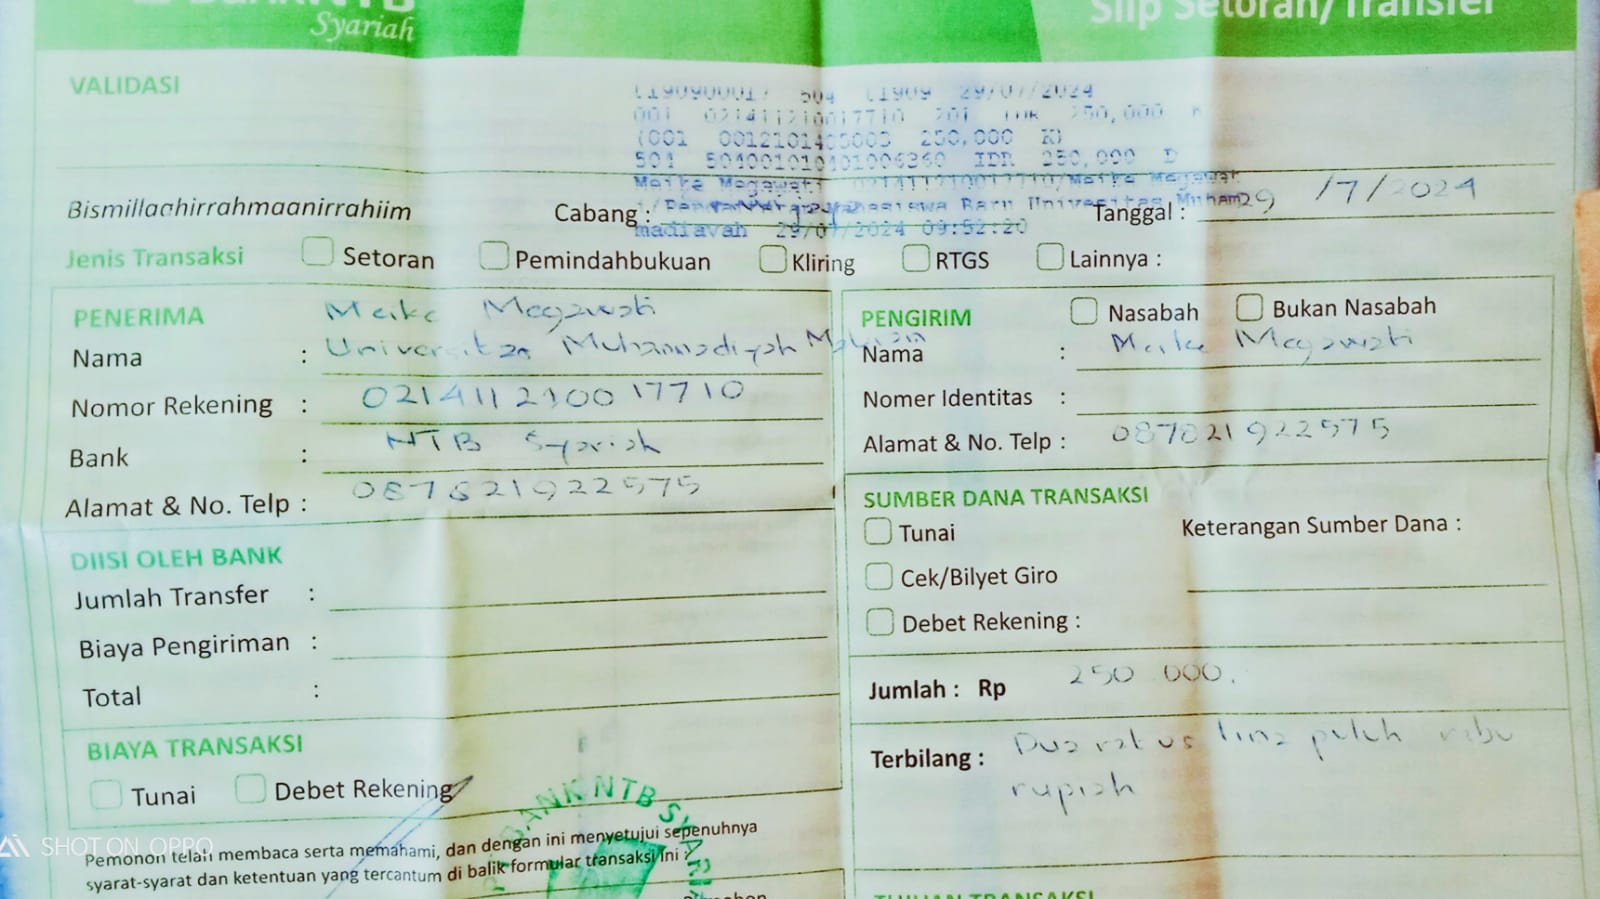 Bank NTB
Syariah
Slip Setoran/Transfer
VALIDASI
504 11909 29/07/2024
001 0214112100177710 201 IDR 250,000 K
(001 0012101405003 250,000 K)
504 504001010401006360 IDR 250,000 D
Meike Megawati 0214112100177710/Meike Megawat
i/Pendaftaran Mahasiswa Baru Universitas Muham
madiayah 29/07/2024 09:52:20
Bismillaahirrahmaanirrahiim
Cabang :
Tanggal : 29/7/2024
Jenis Transaksi Setoran Pemindahbukuan Kliring RTGS Lainnya :
PENERIMA Meike Megawati
Nama : Universitas Muhammadiyah
Nomor Rekening : 0214112100177710
Bank : NTB Syariah
Alamat & No. Telp : 087821922575
DIISI OLEH BANK
Jumlah Transfer :
Biaya Pengiriman :
Total :
BIAYA TRANSAKSI
Tunai Debet Rekening
Pemohon telah membaca serta memahami, dan dengan ini menyetujui sepenuhnya
syarat-syarat dan ketentuan yang tercantum di balik formular transaksi ini :
BANK NTB SYARIA
PENGIRIM Nasabah Bukan Nasabah
Nama : Meike Megawati
Nomer Identitas :
Alamat & No. Telp : 087821922575
SUMBER DANA TRANSAKSI
Tunai Keterangan Sumber Dana :
Cek/Bilyet Giro
Debet Rekening :
Jumlah : Rp 250 000.
Terbilang : Dua ratus lima puluh ribu
rupiah
TUJUAN TRANSAKSI
Pemohon
SHOT ON OPPO